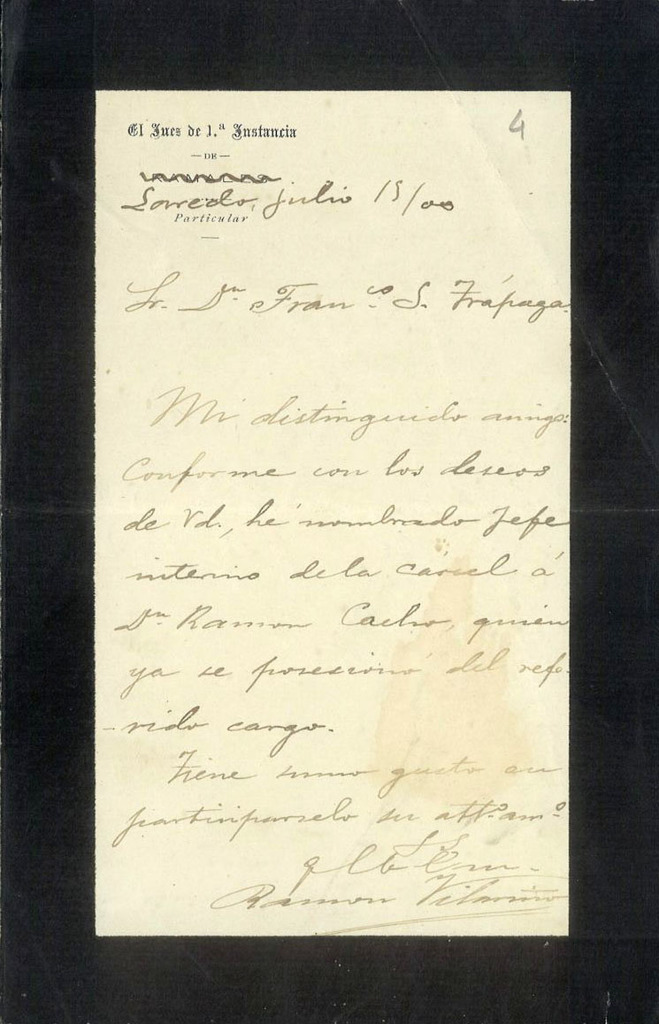 4
El Juez de 1.ª Instancia
— DE —
Loredo, julio 15/00
Particular
Sr. Dn. Franco. S. Trápaga.
Mi distinguido amigo:
Conforme con los deseos
de Vd., hé nombrado Jefe
interino de la cárcel á
Dn. Ramon Cacho, quién
ya se posesionó del refe-
-rido cargo.
Tiene sumo gusto en
participarselo su atto. amo.
q
Ramon Vilariño